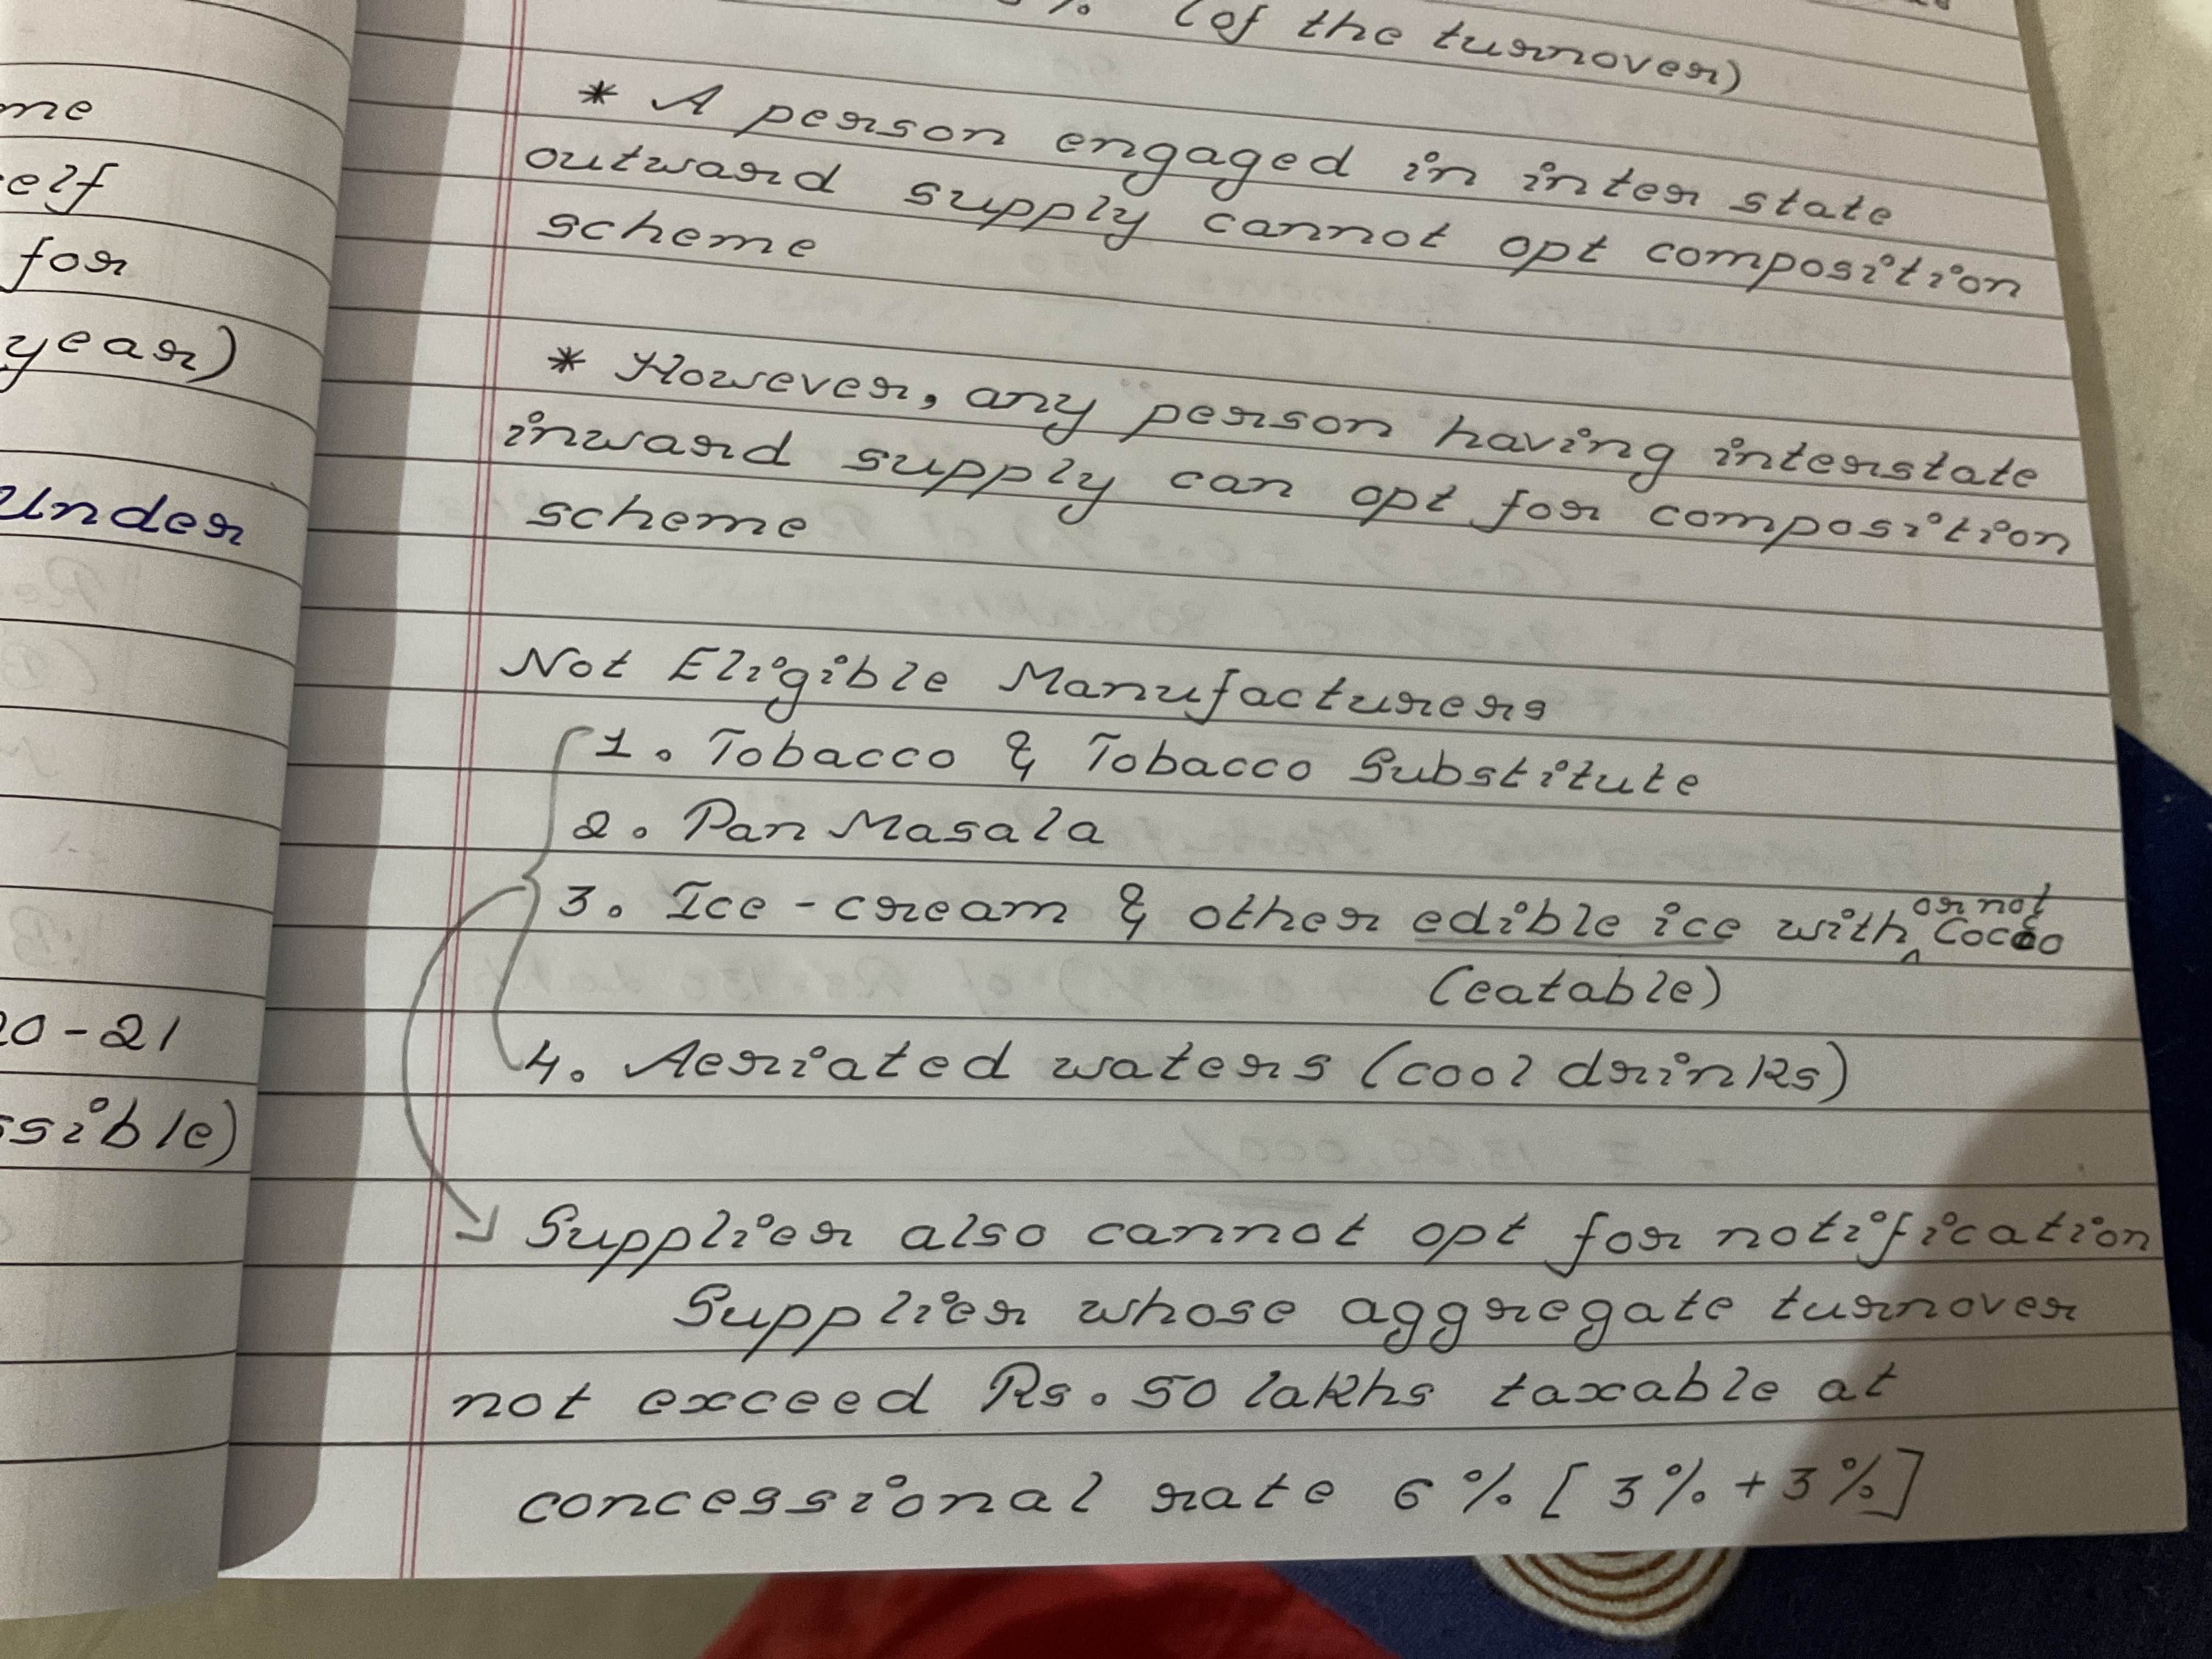 me
elf
for
year)
Under
20-21
ssible)
% (of the turnover)
* A person engaged in inter state
outward supply cannot opt composition
scheme
* However, any person having interstate
inward supply can opt for composition
scheme
Not Eligible Manufacturers
1. Tobacco & Tobacco Substitute
2. Pan Masala
3. Ice-cream & other edible ice with or not Cocoo
(eatable)
4. Aeriated waters (cool drinks)
Supplier also cannot opt for notification
Supplier whose aggregate turnover
not exceed Rs. 50 lakhs taxable at
concessional rate 6% [3%+3%]